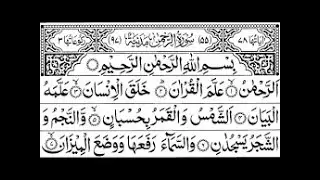 اٰيَاتُهَا ٧٨ (٥٥) سُوْرَةُ الرَّحْمٰنِ مَدَنِيَّةٌ (٩٧) رُكُوْعَاتُهَا ٣
بِسْمِ اللّٰهِ الرَّحْمٰنِ الرَّحِيْمِ
اَلرَّحْمٰنُ ۙ‏﴿۱﴾ عَلَّمَ الْقُرْاٰنَ ؕ‏﴿۲﴾ خَلَقَ الْاِنْسَانَ ۙ‏﴿۳﴾ عَلَّمَهُ
الْبَيَانَ ﴿۴﴾ اَلشَّمْسُ وَالْقَمَرُ بِحُسْبَانٍ ﴿۵﴾ وَّالنَّجْمُ وَ
الشَّجَرُ يَسْجُدٰنِ ﴿۶﴾ وَالسَّمَآءَ رَفَعَهَا وَوَضَعَ الْمِيْزَانَ ﴿۷﴾